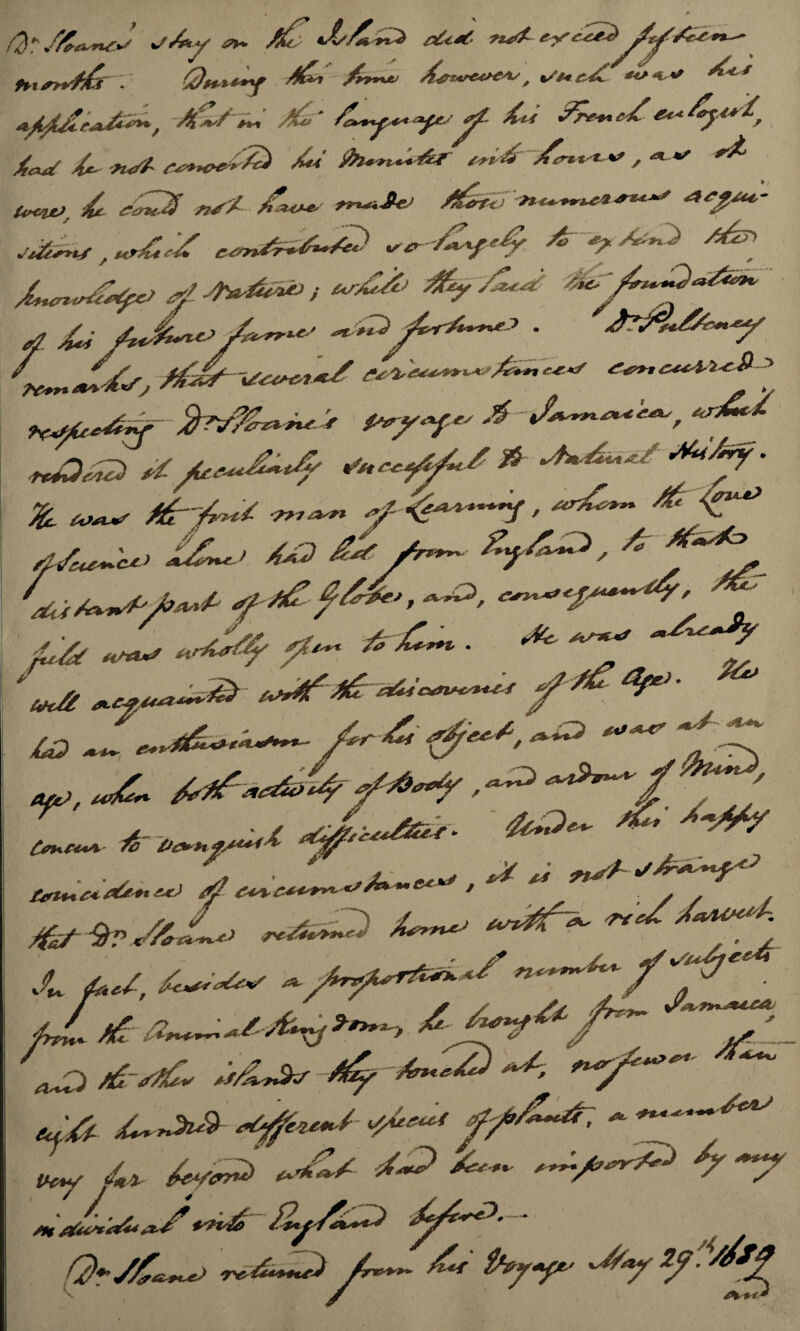 Dr. Sloane's stay on the Island did not exceed fifteen
months. During this time, however, such was his
application, that in the language of his French eulogist,
had he not converted his Minutes into Hours, as it
were, he could not have made those numerous acqui-
sitions, which contributed so largely to extend the
knowledge of Nature; while they laid the foundation
of his future fame and fortune. Dr. Pulteney
remarks, that several circumstances concurred
respecting Dr. Sloane's Voyage to Jamaica, which
rendered it peculiarly successful to Natural History.
He was the first man of Learning, whom the love
of Science alone had led from England, to that
distant part of the Globe, and, consequently, the
field was wholly open to him. He was already
well acquainted with the discoveries of the Age. He
had an enthusiasm for his object, and was at an
age, when both activity of Body, and ardour of Mind,
concur to vanquish difficulties. Under this happy
coincidence of circumstances, it is not strange
that Dr. Sloane returned home with a rich harvest.
In fact, besides a proportional number of subjects
from the Animal Kingdom, he brought from Jamaica,
and the other islands they touched at, no fewer than
eight hundred different species of plants, a number
very far beyond what had been imported by any
individual into England before.
Dr. Sloane returned from his Voyage May 29th. 1689
and